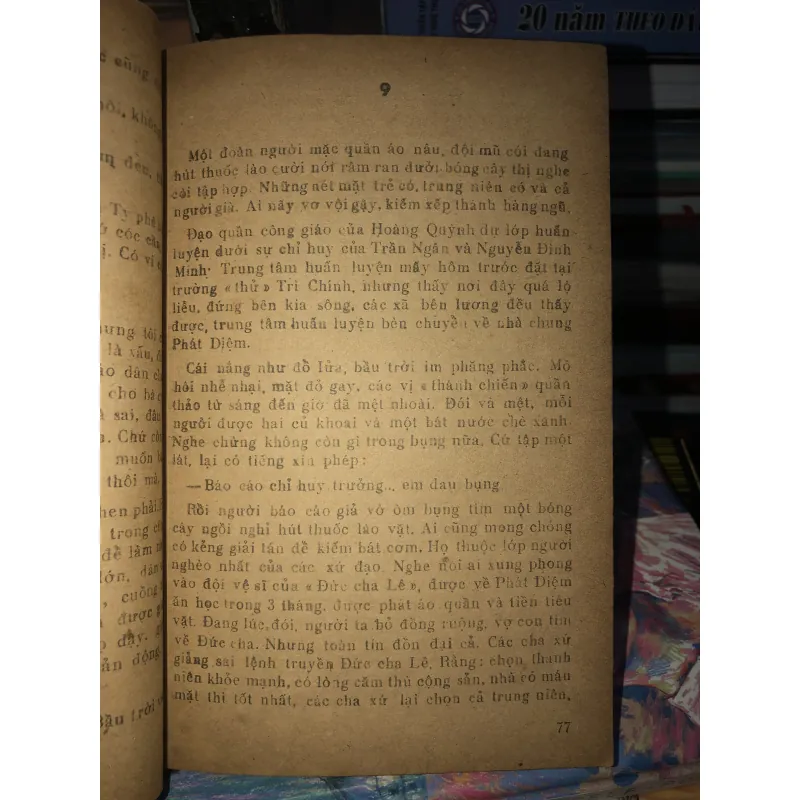 20 năm THEO
9
Một đoàn người mặc quần áo nâu, đội mũ cói đang
hút thuốc lào cười nói râm ran dưới bóng cây thị nghe
còi tập hợp. Những nét mặt trẻ có, trung niên có và cả
người già. Ai nấy vơ vội gậy, kiếm xếp thành hàng ngũ.
Đạo quân công giáo của Hoàng Quỳnh dự lớp huấn
luyện dưới sự chỉ huy của Trần Ngân và Nguyễn Đình
Minh. Trung tâm huấn luyện mấy hôm trước đặt tại
trường «thử» Trì Chính, nhưng thấy nơi đây quá lộ
liễu, đứng bên kia sông, các xã bên lương đều thấy
được, trung tâm huấn luyện bèn chuyển về nhà chung
Phát Diệm.
Cái nắng như đổ lửa, bầu trời im phăng phắc. Mồ
hôi nhễ nhại, mặt đỏ gay, các vị «thánh chiến» quần
thảo từ sáng đến giờ đã mệt nhoài. Đói và mệt, mỗi
người được hai củ khoai và một bát nước chè xanh.
Nghe chừng không còn gì trong bụng nữa. Cứ tập một
lát, lại có tiếng xin phép:
— Báo cáo chỉ huy trưởng... em đau bụng
Rồi người báo cáo giả vờ ôm bụng tìm một bóng
cây ngồi nghỉ hút thuốc lào vặt. Ai cũng mong chóng
có kẻng giải tán để kiếm bát cơm. Họ thuộc lớp người
nghèo nhất của các xứ đạo. Nghe nói ai xung phong
vào đội vệ sĩ của «Đức cha Lê», được về Phát Diệm
ăn học trong 3 tháng, được phát áo quần và tiền tiêu
vặt. Đang lúc đói, người ta bỏ đồng ruộng, vợ con tìm
về Đức cha. Nhưng toàn tin đồn đại cả. Các cha xứ
giảng sai lệnh truyền Đức cha Lê. Rằng: chọn thanh
niên khỏe mạnh, có lòng căm thù cộng sản, nhà có máu
mặt thì tốt nhất, các cha xứ lại chọn cả trung niên,
77